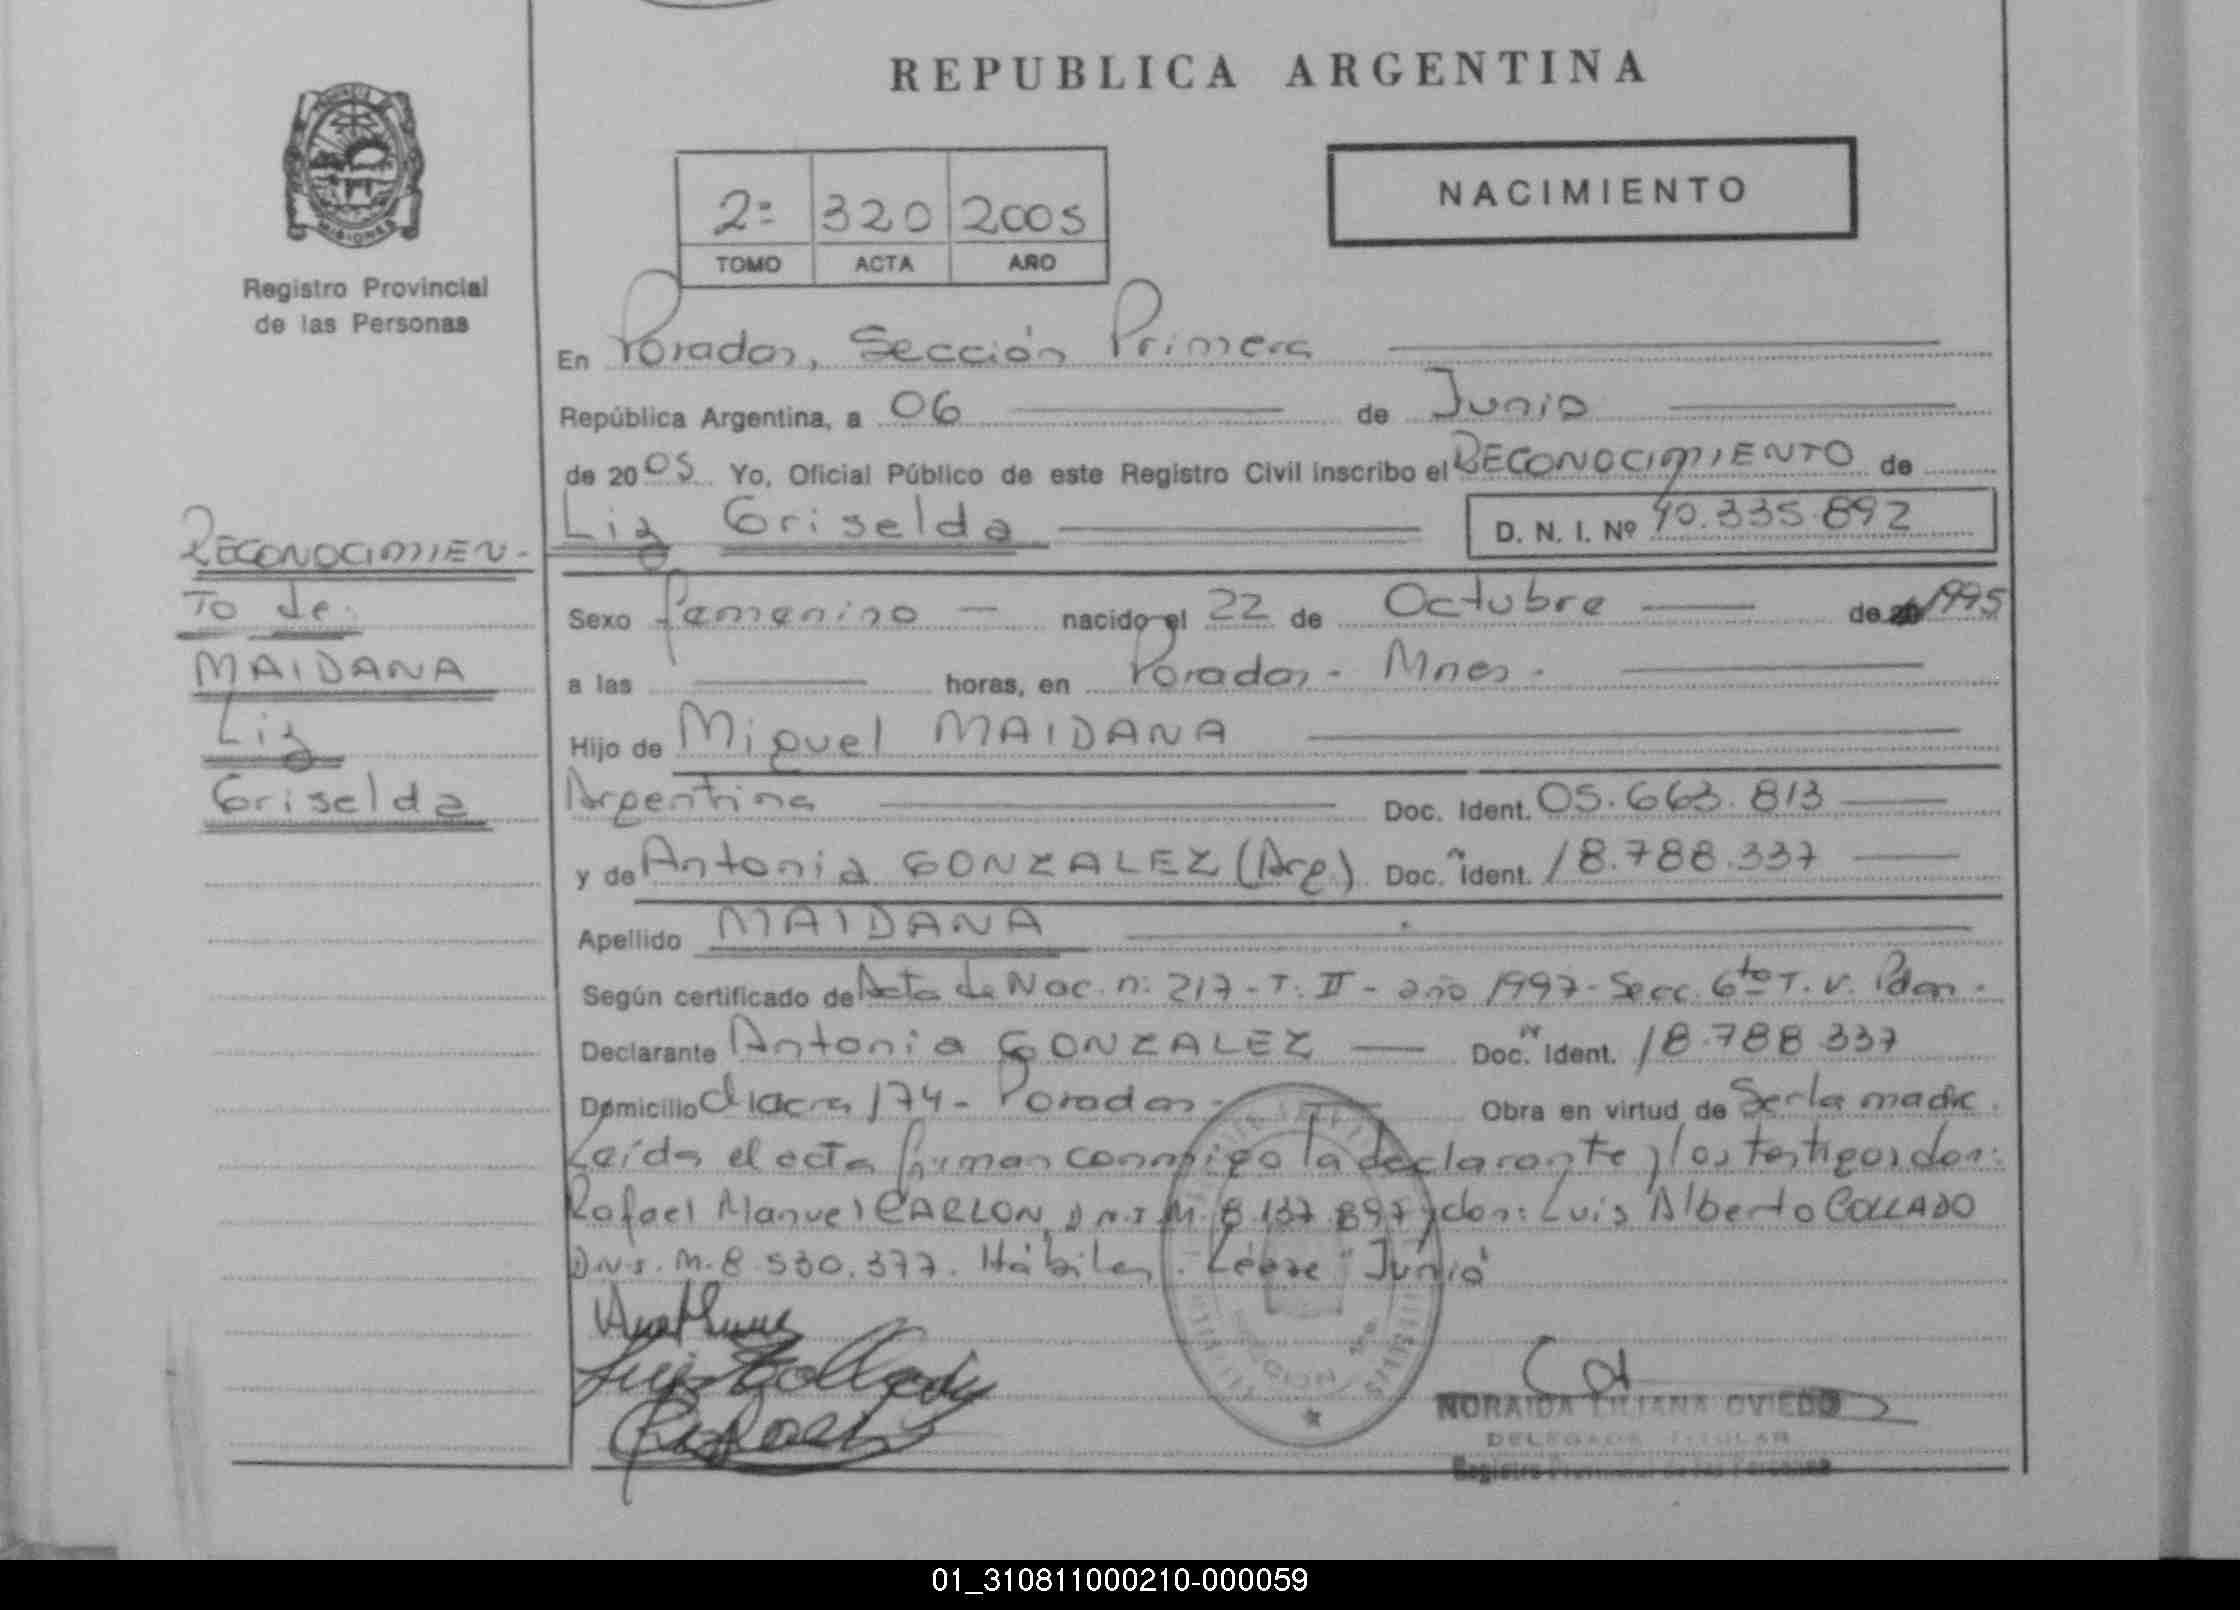 REPUBLICA ARGENTINA
MISIONES
Registro Provincial
de las Personas
2º 320 2005
TOMO ACTA AÑO
NACIMIENTO
En Posadas, Sección Primera
República Argentina, a 06 de Junio
de 2005 Yo, Oficial Público de este Registro Civil inscribo el RECONOCIMIENTO de
Liz Griselda D. N. I. Nº 40.335.892
RECONOCIMIEN-
TO de:
MAIDANA
Liz
Griselda
Sexo femenino nacido el 22 de Octubre de 1995
a las horas, en Posadas - Mnes -
Hijo de Miguel MAIDANA
Argentina Doc. Ident. 05.663.813
y de Antonia GONZALEZ (Arg.) Doc. Ident. 18.788.337
Apellido MAIDANA
Según certificado de Acta de Nac. n: 217 - T. II - año 1997 - Secc. 6to T. V. Pdas -
Declarante Antonia GONZALEZ Doc. Ident. 18.788.337
Domicilio Chacra 174 - Posadas - Obra en virtud de Ser la madre.
Leída el acta firman conmigo la declarante y los testigos don:
Rafael Manuel CARLON, D.N.I. M. 8.137.897 y don: Luis Alberto COLLADO
D.N.I. M. 8.530.377. Hábiles. Léase "Junio"
NORAIDA LILIANA OVIEDO
DELEGADA TITULAR
Registro Provincial de las Personas
01_310811000210-000059